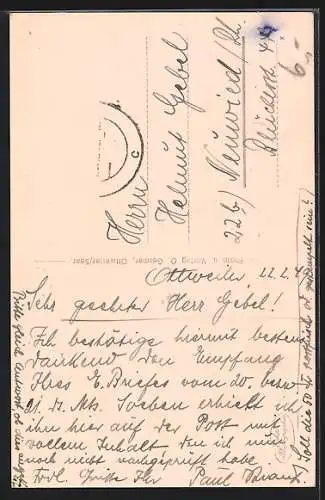 Herrn
Helmut Gebel
22b) Neuwied/Rh.
Blücherstr. 44
6.-
C
Verlag O. Germer, Ottweiler/Saar
Ottweiler, 22.2.49
Sehr geehrter Herr Gebel!
Ich bestätige hiermit bestens
dankend den Empfang
Ihres E. Briefes vom 20. bezw
21. ds. Mts. Soeben erhielt ich
ihn hier auf der Post mit
vollem Inhalt den ich nur
noch nicht nachgeprüft habe
Frdl. Grüße Ihr Paul
Bitte gleich Antwort, ob
Soll die 50 Pf